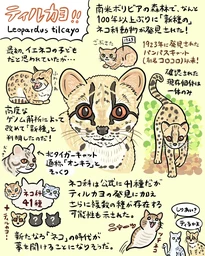 ティルカヨ!!
Leopardus tilcayo
南米ボリビアの森林で、なんと
100年以上ぶりに「新種」の
ネコ科動物が発見された!
最初、イエネコの子ども
だと思われていたが…
1923年に発見された
パンパスキャット
確認された
現存個体は
一体のみ
高度な
ゲノム解析によって
改めて「新種」と
判明したのだ!
北タイガーキャット
通称、「オンキラ」と
そっくり
ネコ科
41種
ネコ科は公式に41種だが
ティルカヨの発見に加え
さらに複数の種が存在する
可能性も示された。
新たなる「ネコ」の時代が
幕を開けることになりそうだ。